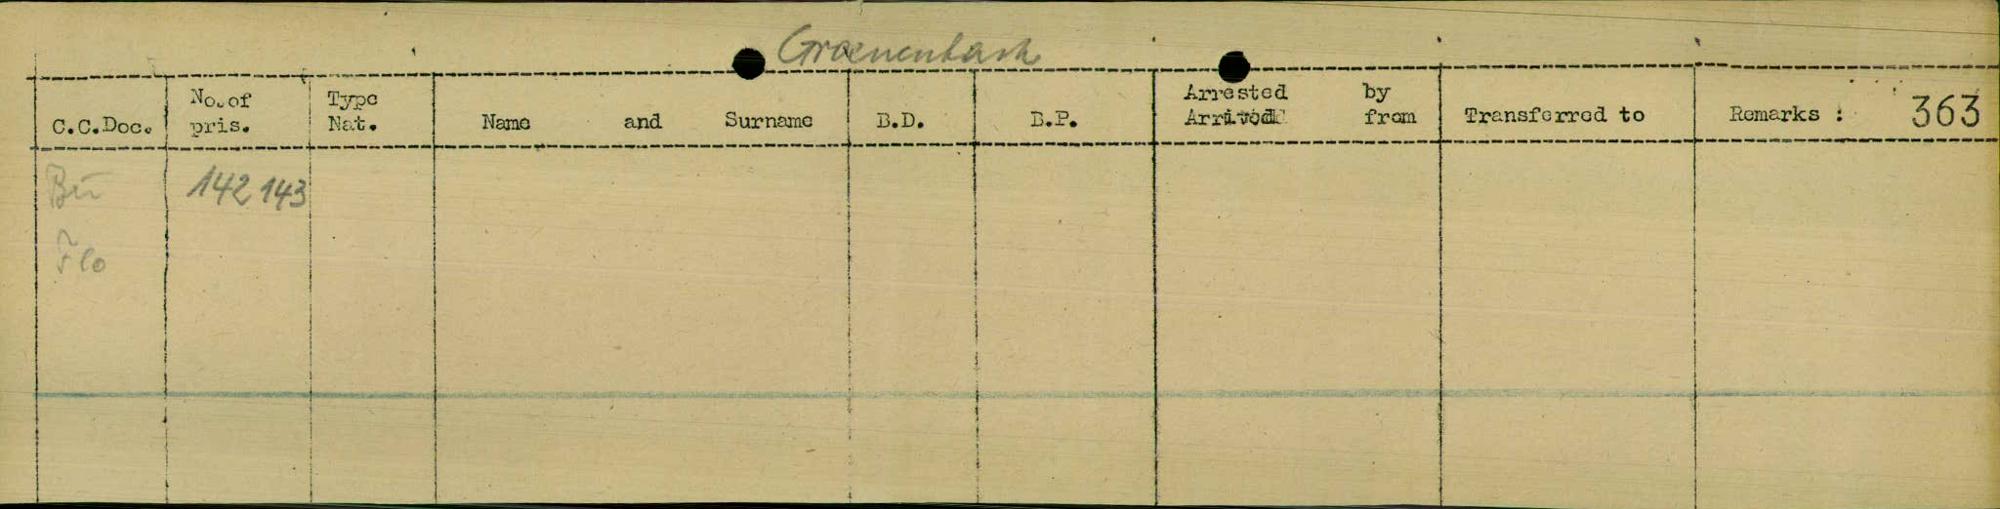 Groenenbach
C.C.Doc. No. of pris. Type Nat. Name and Surname B.D. B.P. Arrested by Arrived from Transferred to Remarks : 363
Bu 142 143
Flo